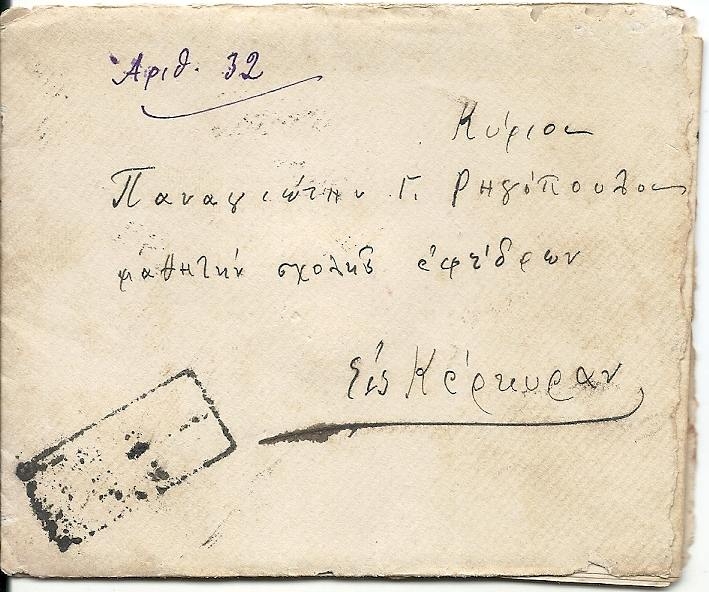 Ἀριθ. 32
Κύριον
Παναγιώτην Γ. Ρηγόπουλον
μαθητήν σχολῆς ἐφέδρων
Εἰς Κέρκυραν